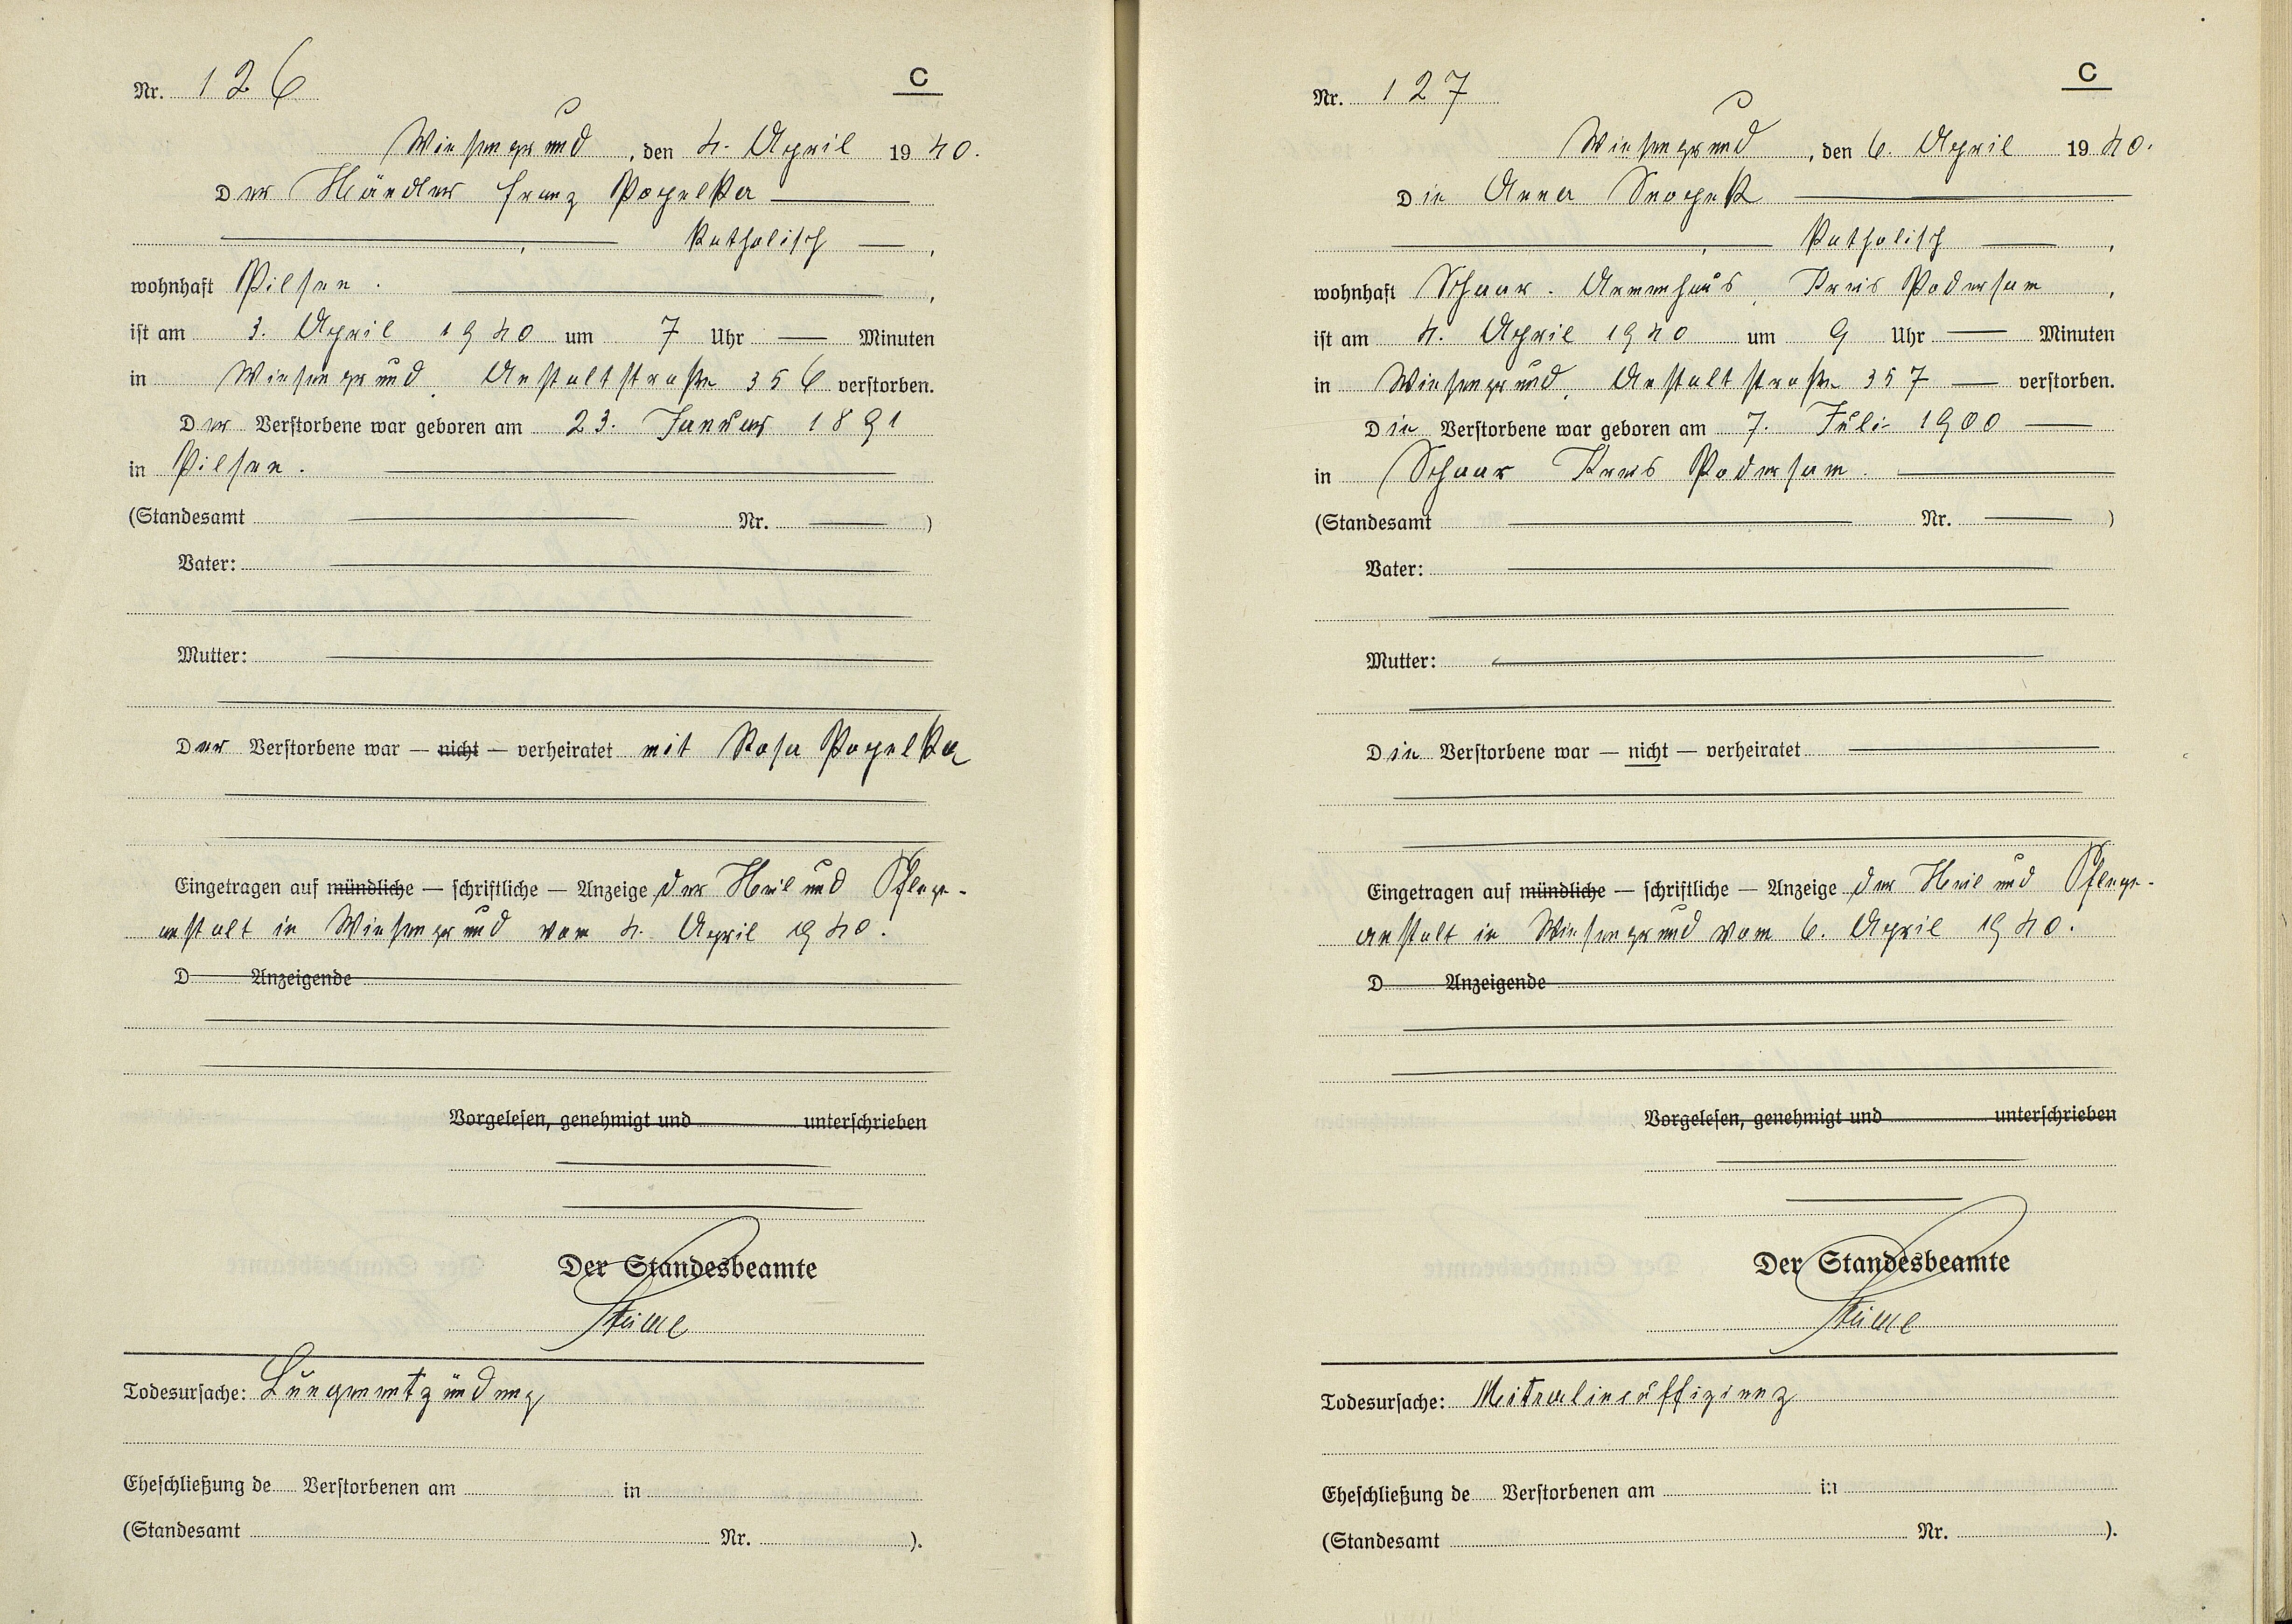 Nr. 126
C
Wiesengrund, den 4. April 1940.
Der Händler Franz Pogelka
katholisch,
wohnhaft Pilsen.
ist am 3. April 1940 um 7 Uhr — Minuten
in Wiesengrund, Anstaltstraße 356 verstorben.
Der Verstorbene war geboren am 23. Januar 1891
in Pilsen.
(Standesamt Nr. )
Vater:
Mutter:
Der Verstorbene war — nicht — verheiratet mit Rosa Pogelka
Eingetragen auf mündliche — schriftliche — Anzeige der Heil und Pflege-
anstalt in Wiesengrund vom 4. April 1940.
D Anzeigende
Vorgelesen, genehmigt und unterschrieben
Der Standesbeamte
Todesursache: Lungenentzündung
Eheschließung de Verstorbenen am in
(Standesamt Nr. ).
Nr. 127
C
Wiesengrund, den 6. April 1940.
Die Anna
katholisch,
wohnhaft Schaar. Armenhaus, Kreis Podersam,
ist am 4. April 1940 um 9 Uhr — Minuten
in Wiesengrund, Anstaltstraße 357 — verstorben.
Die Verstorbene war geboren am 7. Juli 1900
in Schaar Kreis Podersam.
(Standesamt Nr. )
Vater:
Mutter:
Die Verstorbene war — nicht — verheiratet
Eingetragen auf mündliche — schriftliche — Anzeige der Heil und Pflege-
anstalt in Wiesengrund vom 6. April 1940.
D Anzeigende
Vorgelesen, genehmigt und unterschrieben
Der Standesbeamte
Todesursache: Mitralinsuffizienz
Eheschließung de Verstorbenen am in
(Standesamt Nr. ).